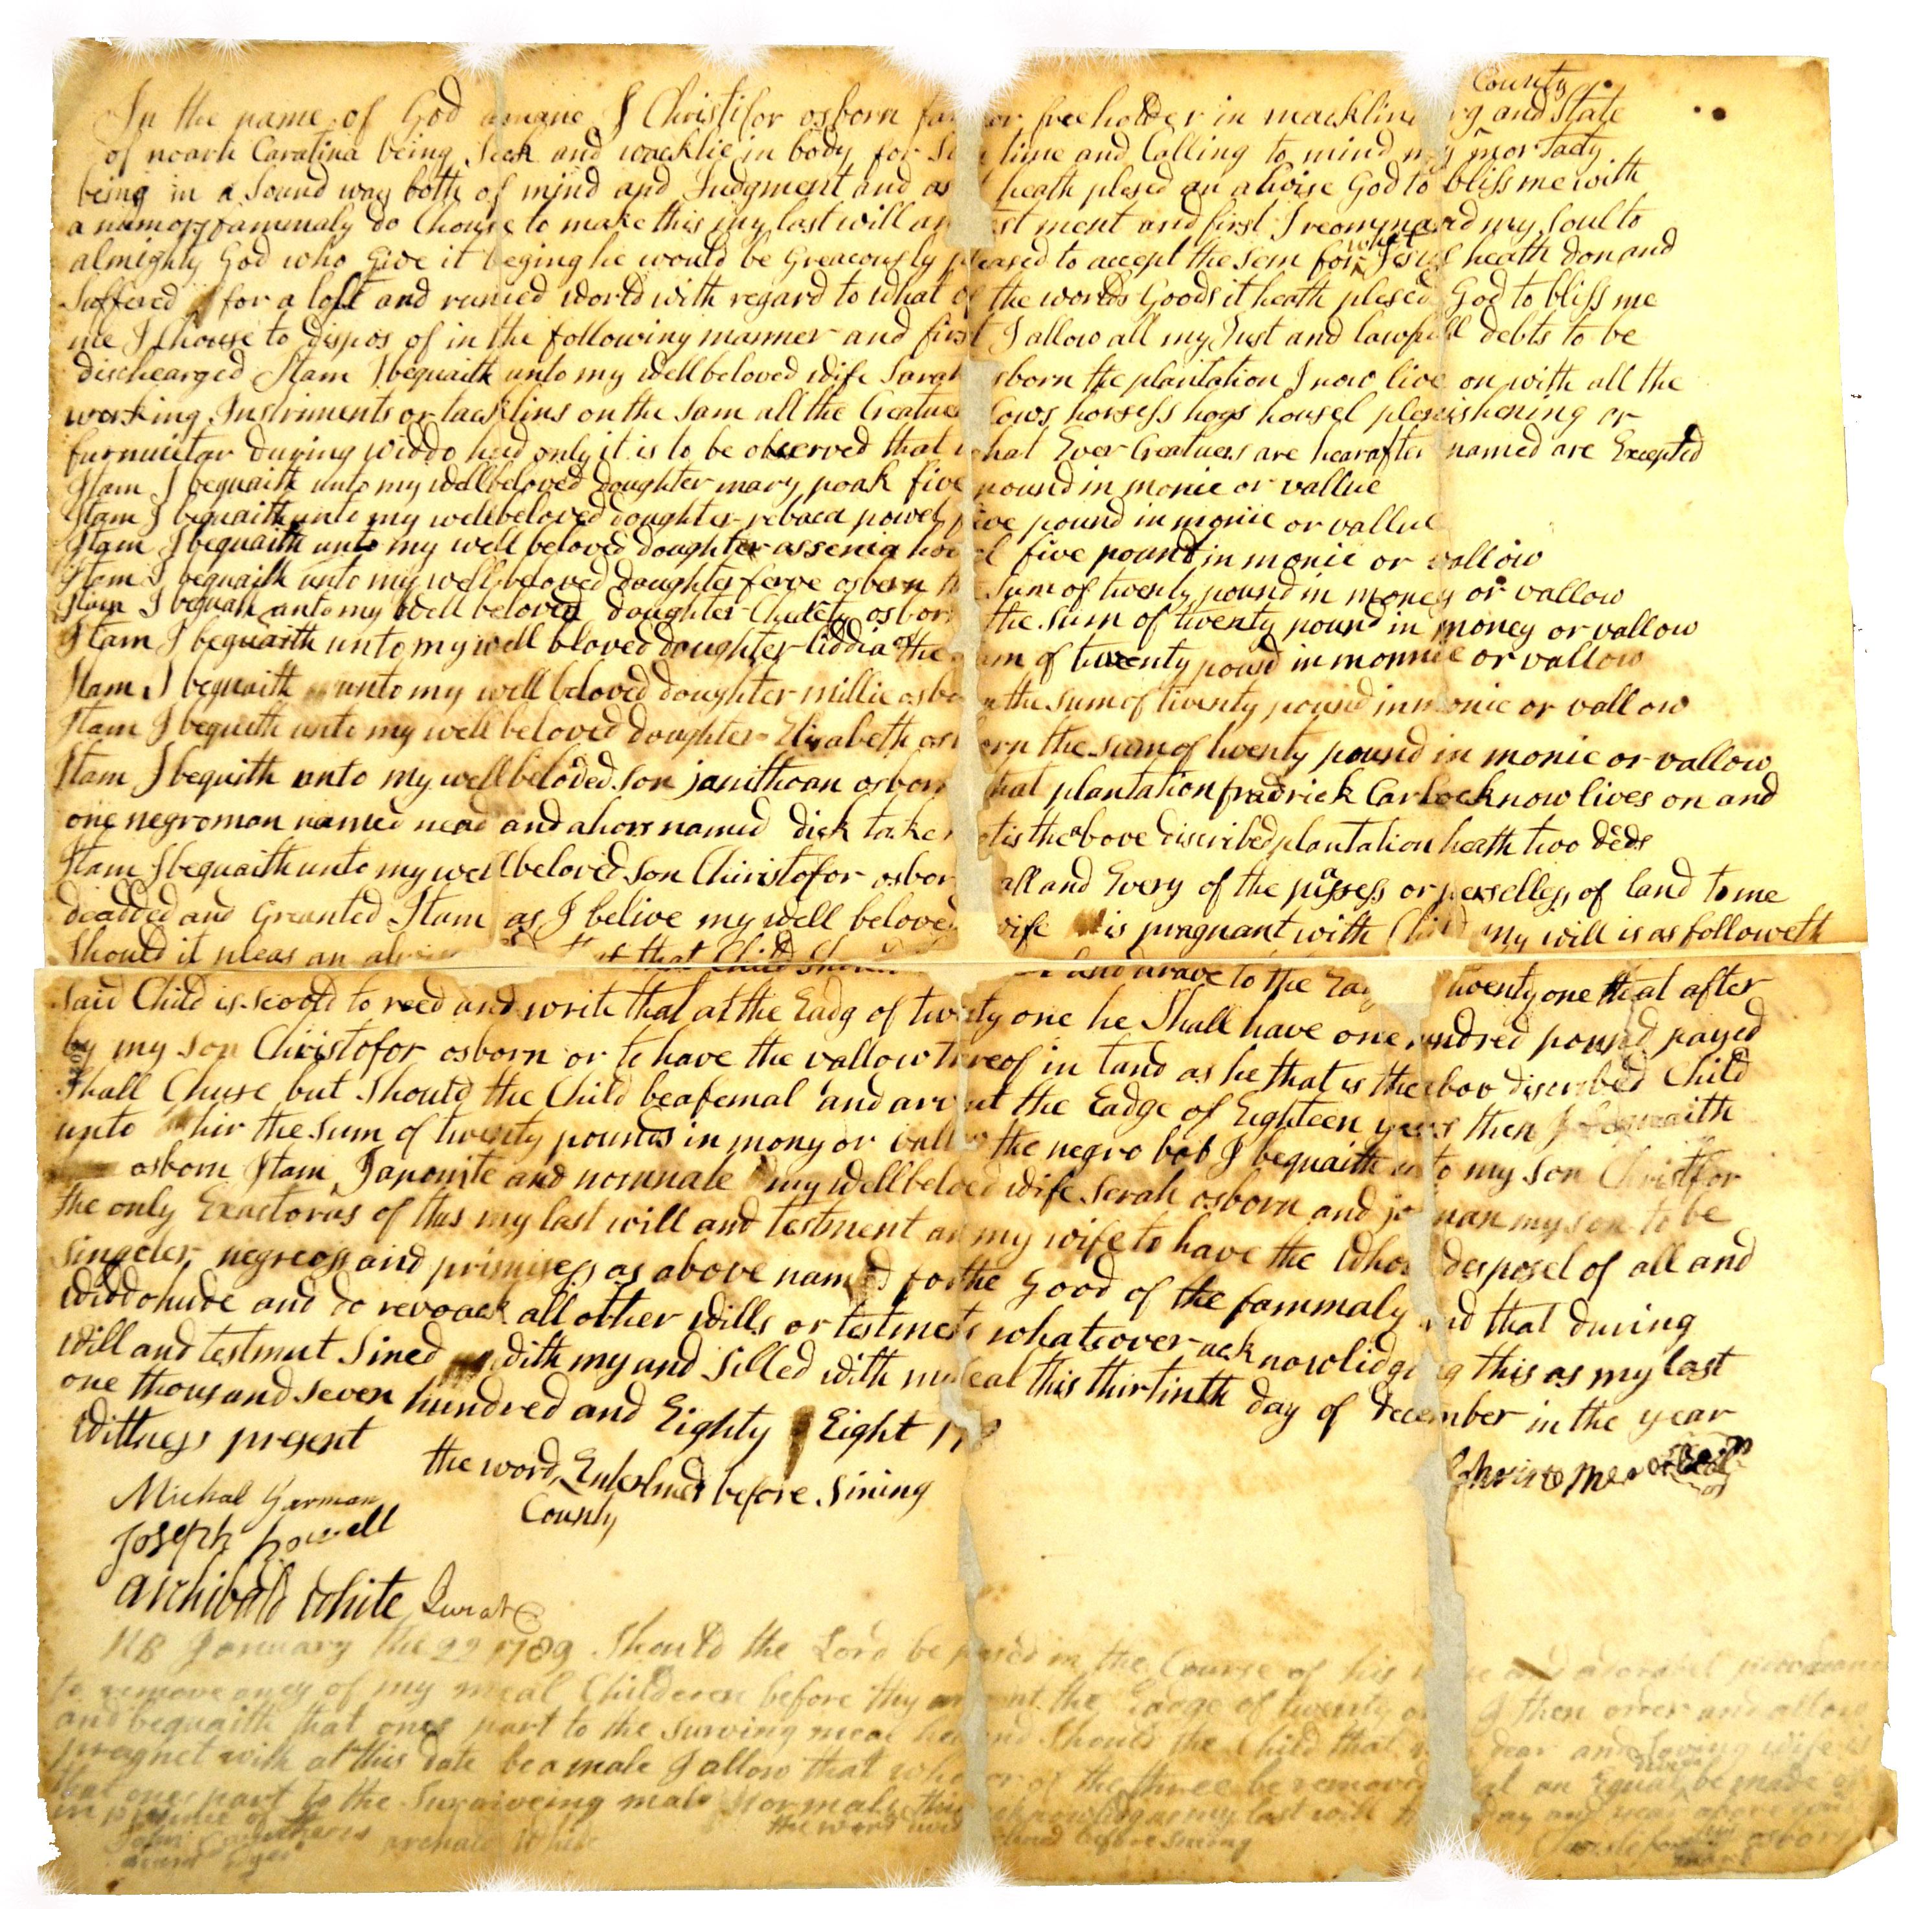 County
In the name of God amane I Christifor osborn free holder in and State
of noarh Caralina being Seck and wacklie in body for time and Calling to mind my mortacty
being in a Sound way both of mind and Judgment and as heath plesed an alwise God to bliss me with
a numory fammaly do Chouse to make this my last will and first I recommand my Soul to
what
almighty God who Give it beging he would be Greacously pleased to accept the Sem for Jesus heath don and
Suffered for a lost and runied world with regard to what of the worlds Goods it heath plesed God to bliss me
me I Chouse to dispos of in the following manner and first I allow all my Just and lawfull debts to be
dischearged Itam I bequaith unto my well beloved wife Sarah osborn the plantation I now live on with all the
working Instriments or tacklins on the Sam all the Creatues Cows horsess hogs housel plenishening or
furnuitar during widdo hud only it is to be observed that what Ever Creatuers are hearafter named are Excepted
Itam I bequaith unto my wellbeloved doughter mary poak five pound in monie or vallue
Itam I bequaith unto my wellbeloved doughter rebaca powel five pound in monie or vallue
Itam I bequaith unto my well beloved doughter assenia five pound in monie or vallow
Itam I bequaith unto my well beloved doughter ferve osbern the Sum of twenty pound in money or vallow
Itam I bequaith unto my well beloved doughter osborn the Sum of twenty pound in money or vallow
Itam I bequaith unto my well bloved doughter liddia the Sum of twenty pound in monnie or vallow
Itam I bequaith unto my well beloved doughter millie osborn the Sum of twenty pound in monie or vallow
Itam I bequith unto my well beloved doughter Elizabeth osborn the Sum of twenty pound in monie or vallow
Itam I bequith unto my well beloved Son janithoan osborn that plantation fradrick Carlock now lives on and
one negroman named nead and a hors named dick take notis the above discribed plantation heath two deds
Itam I bequaith unto my well beloved Son Christofor osborn all and Every of the pissess or perselless of land to me
deadded and Greanted Itam as I belive my well beloved wife is pragnant with Child my will is as followeth
Should it pleas an that Child and arave to the Eadg twenty one that after
Said Child is Scoold to reed and write that at the Eadg of twenty one he Shall have one hundred pound payed
by my Son Christofor osborn or to have the vallow thereof in land as he that is the abov discribed Child
Shall Chuse but Should the Child be a femal and arive at the Eadge of Eighteen years then I bequaith
unto hir the Sum of twenty pounds in mony or vallow the negro bob I bequaith unto my Son Christfor
osborn Itam I aponite and nominate my well beloved wife Serah osborn and my son to be
the only Exactorus of thes my last will and testment and my wife to have the whole desposel of all and
Singuler negross and primisess as above named for the Good of the fammaly and that during
widdohude and do revoack all other wills or testments whatsover acknowlidging this as my last
will and testmut Sined with my and Silled with my Seal this thirtinth day of december in the year
one thousand seven hundred and Eighty Eight
Wittness present
the word Enterlined before Sining
County
Michal Garman
Joseph howell
Archibald white Jurat
NB January the 22 1789 Should the Lord be pleased in the Course of his and adorabel providance
to remove aney of my meal Childeren before they arive at the Eadge of twenty one I then order and allow
and bequaith that ones part to the Surving meal and Should the Child that my dear and loving wife is
pragnet with at this date be a male I allow that whoever of the three be removed that an Equal be made of
that ones part to the Surviveing male or mals this acknowlidg as my last will the day and year above
in presence of the word before Sining
osborn
mark